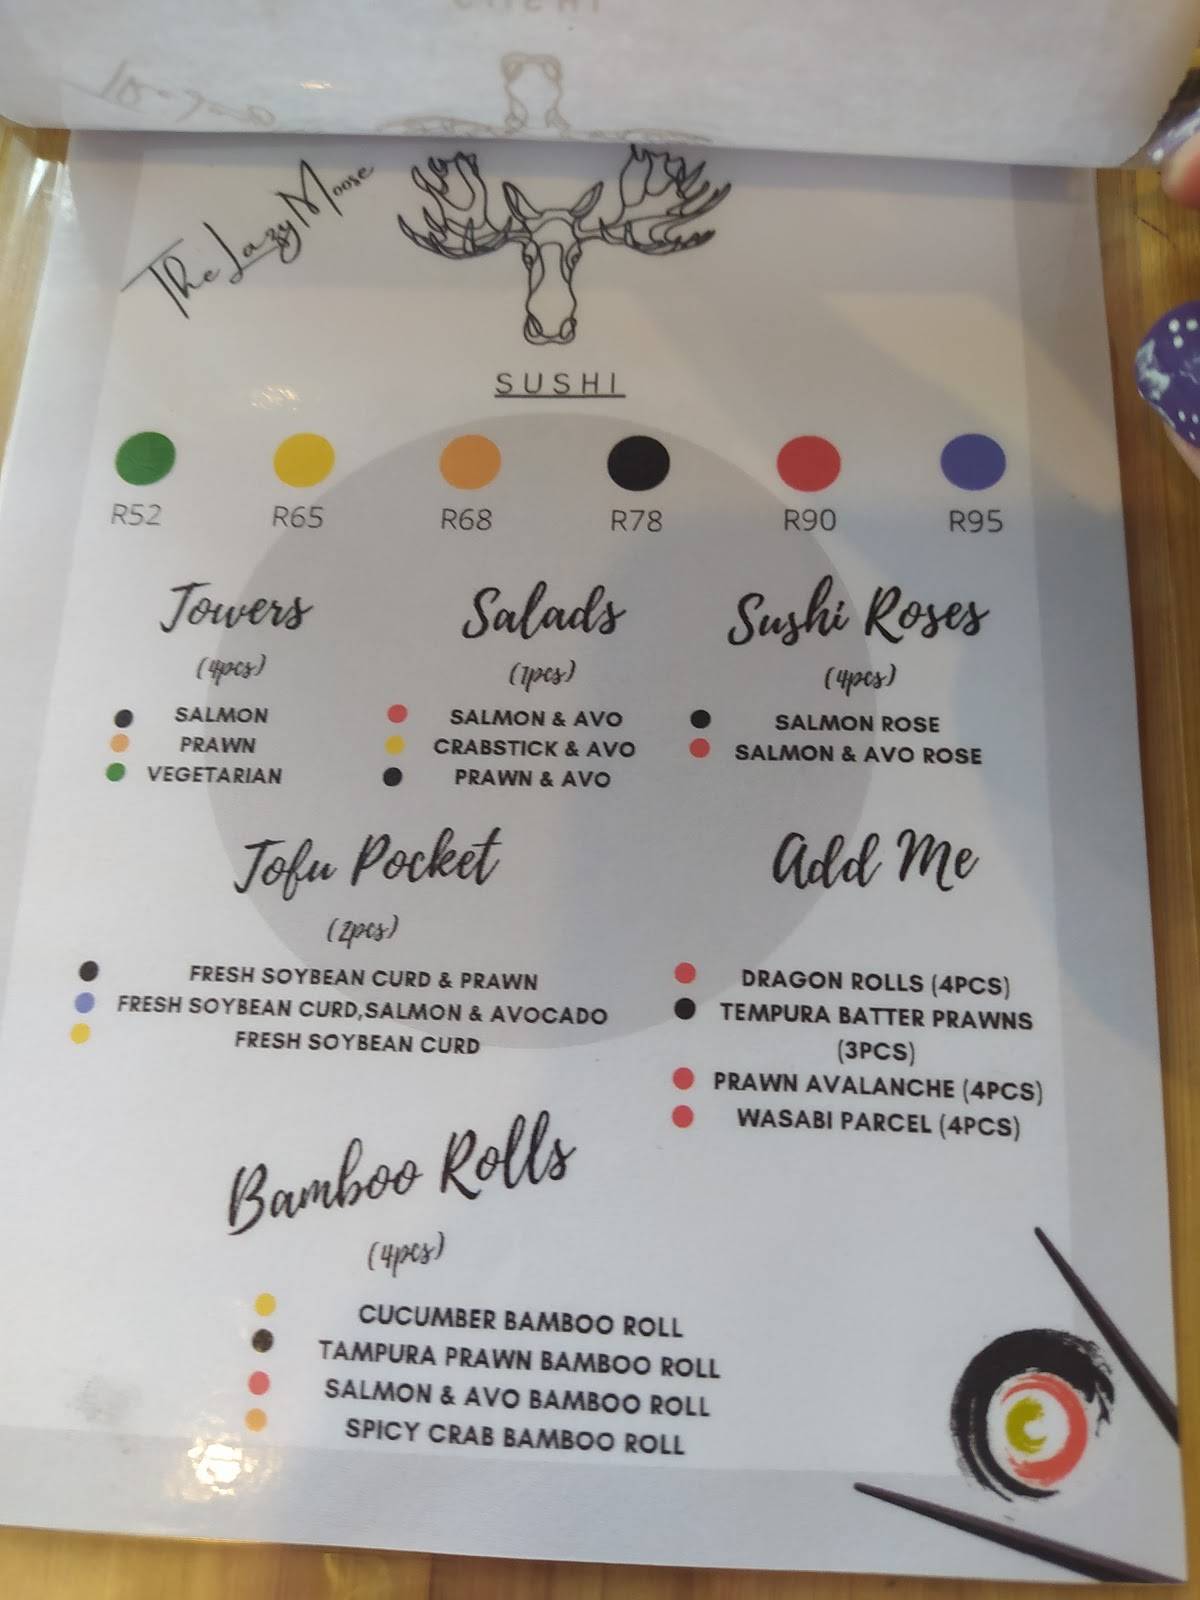 The Lazy Moose
SUSHI
R52 R65 R68 R78 R90 R95
Towers
(4pcs)
SALMON
PRAWN
VEGETARIAN
Salads
(1pcs)
SALMON & AVO
CRABSTICK & AVO
PRAWN & AVO
Sushi Roses
(4pcs)
SALMON ROSE
SALMON & AVO ROSE
Tofu Pocket
(2pcs)
FRESH SOYBEAN CURD & PRAWN
FRESH SOYBEAN CURD,SALMON & AVOCADO
FRESH SOYBEAN CURD
Add Me
DRAGON ROLLS (4PCS)
TEMPURA BATTER PRAWNS
(3PCS)
PRAWN AVALANCHE (4PCS)
WASABI PARCEL (4PCS)
Bamboo Rolls
(4pcs)
CUCUMBER BAMBOO ROLL
TAMPURA PRAWN BAMBOO ROLL
SALMON & AVO BAMBOO ROLL
SPICY CRAB BAMBOO ROLL